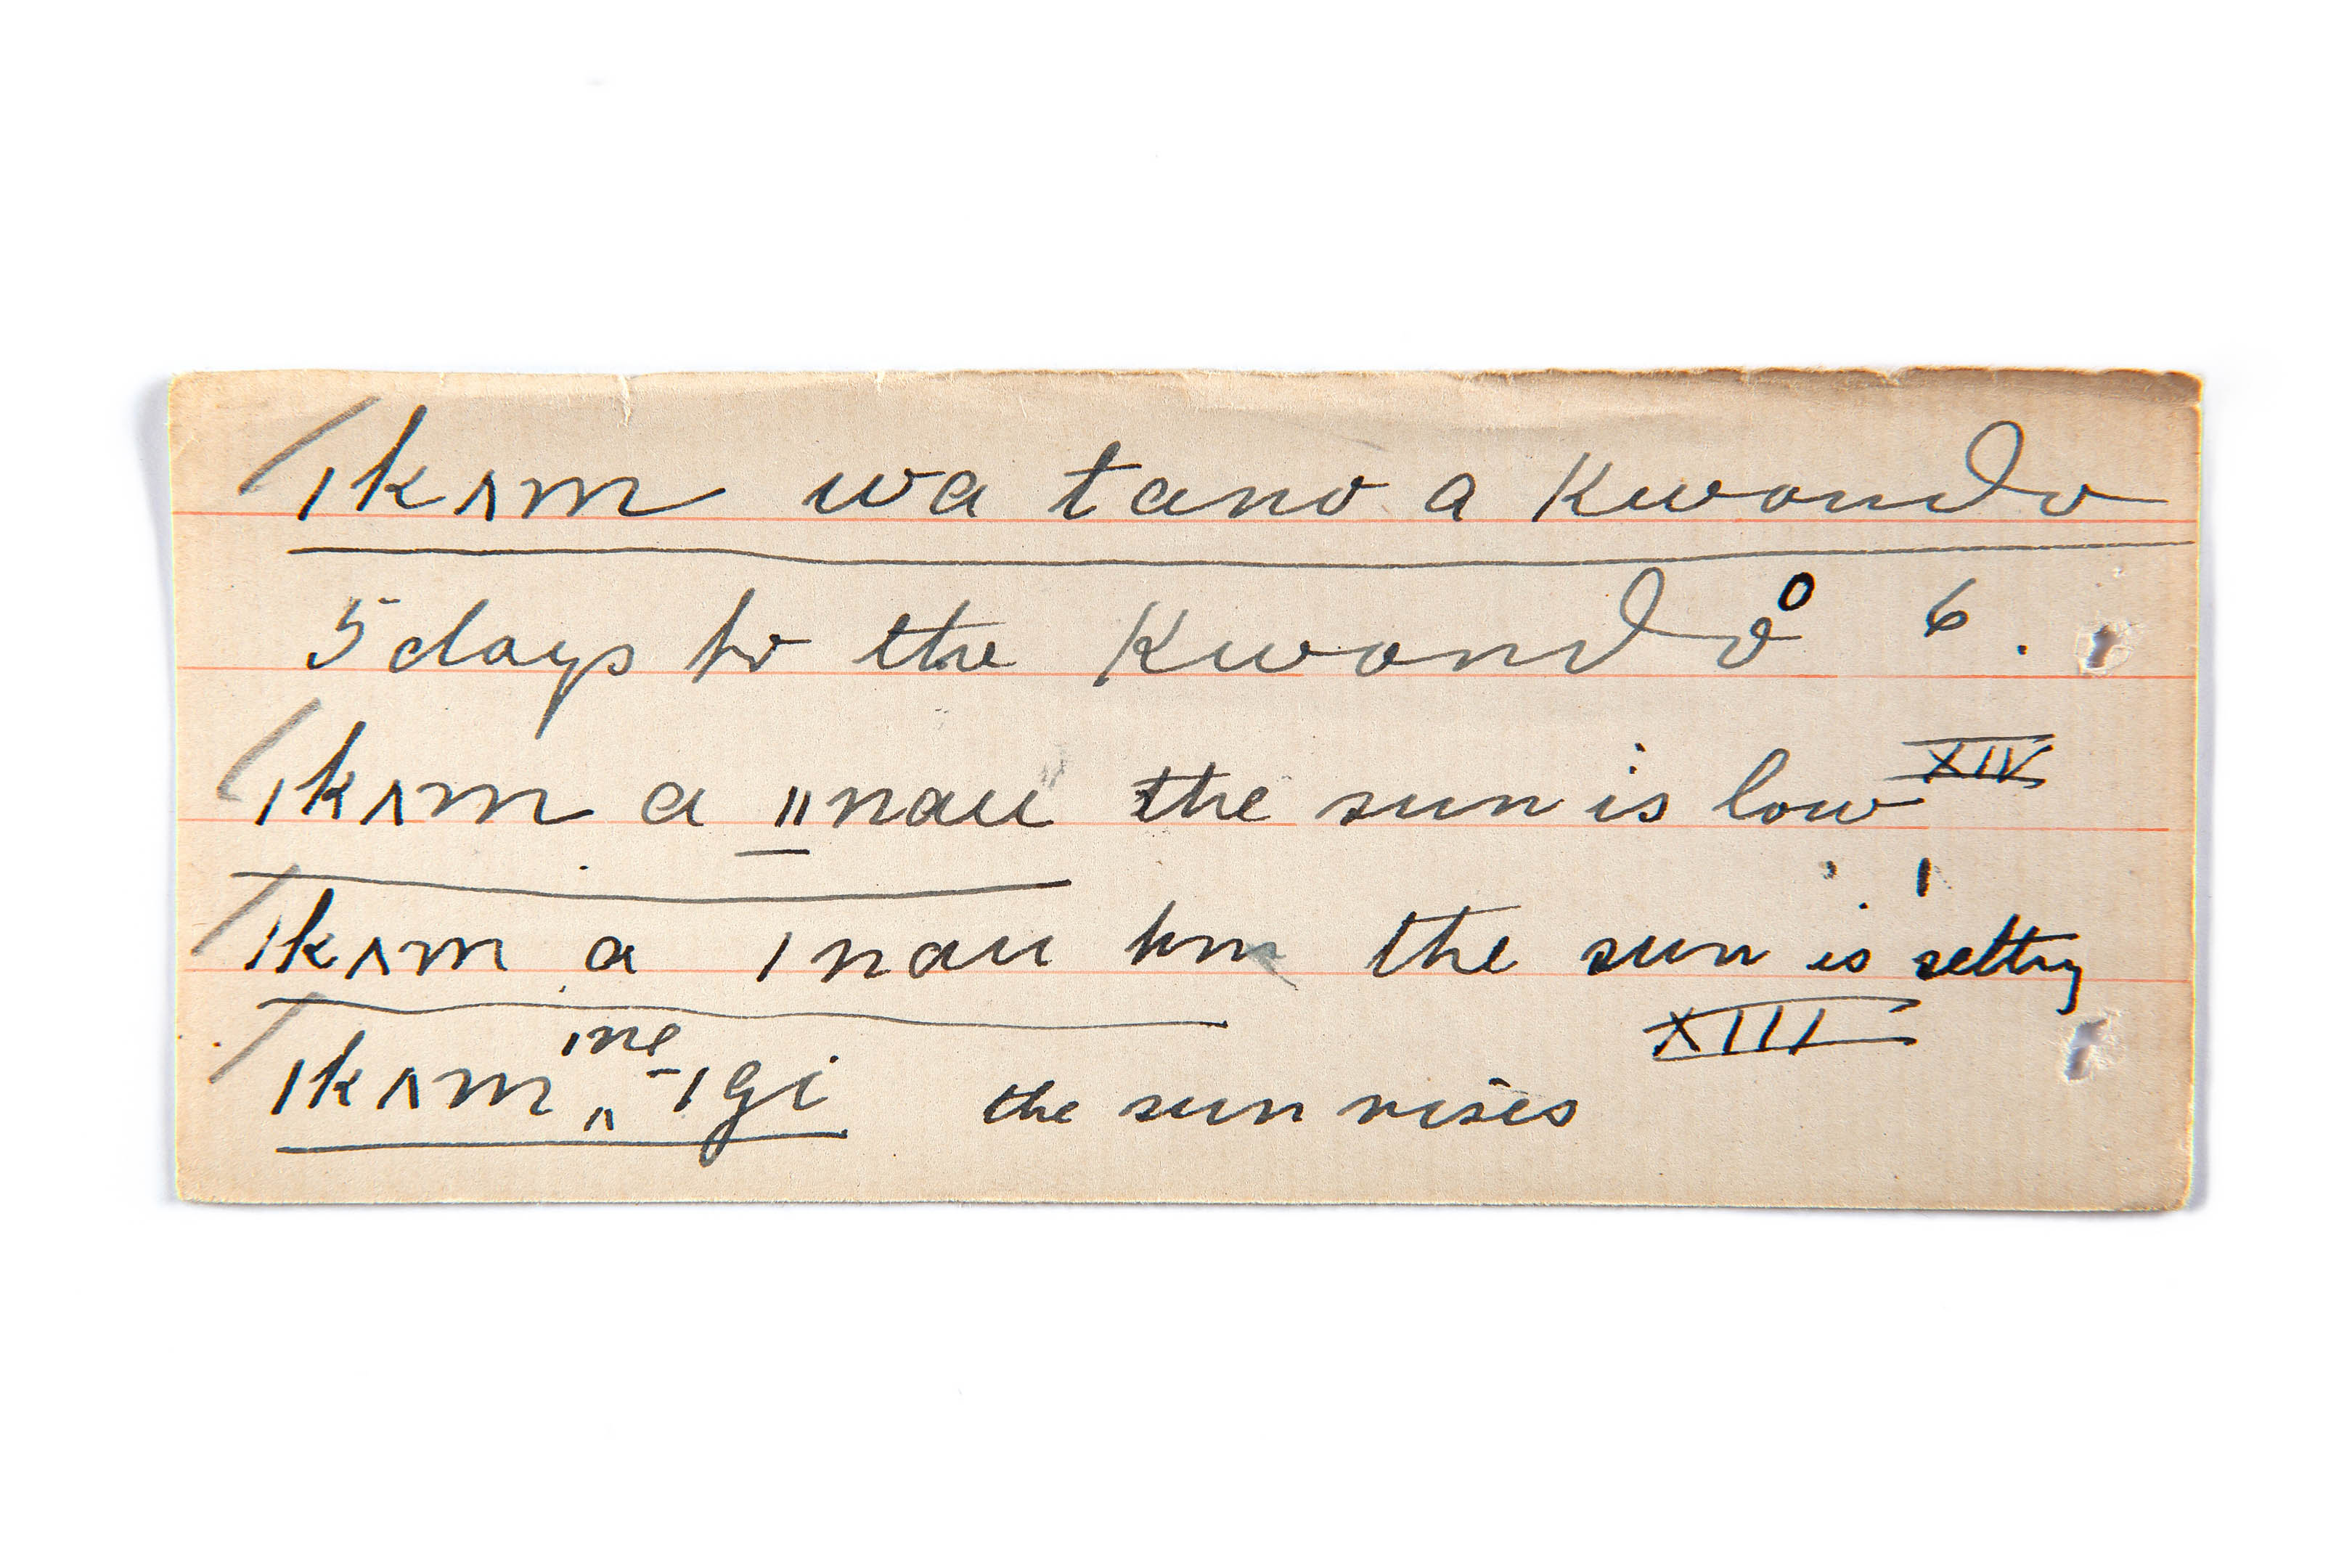 ǀkʌm wa tano a Kwondo
5 days to the Kwondo 6.
ǀkʌm a ǁnau the sun is low XIV
ǀkʌm a ǀnau hm the sun is setting
XIII
ǀkʌm ǀne -ǀgi the sun rises